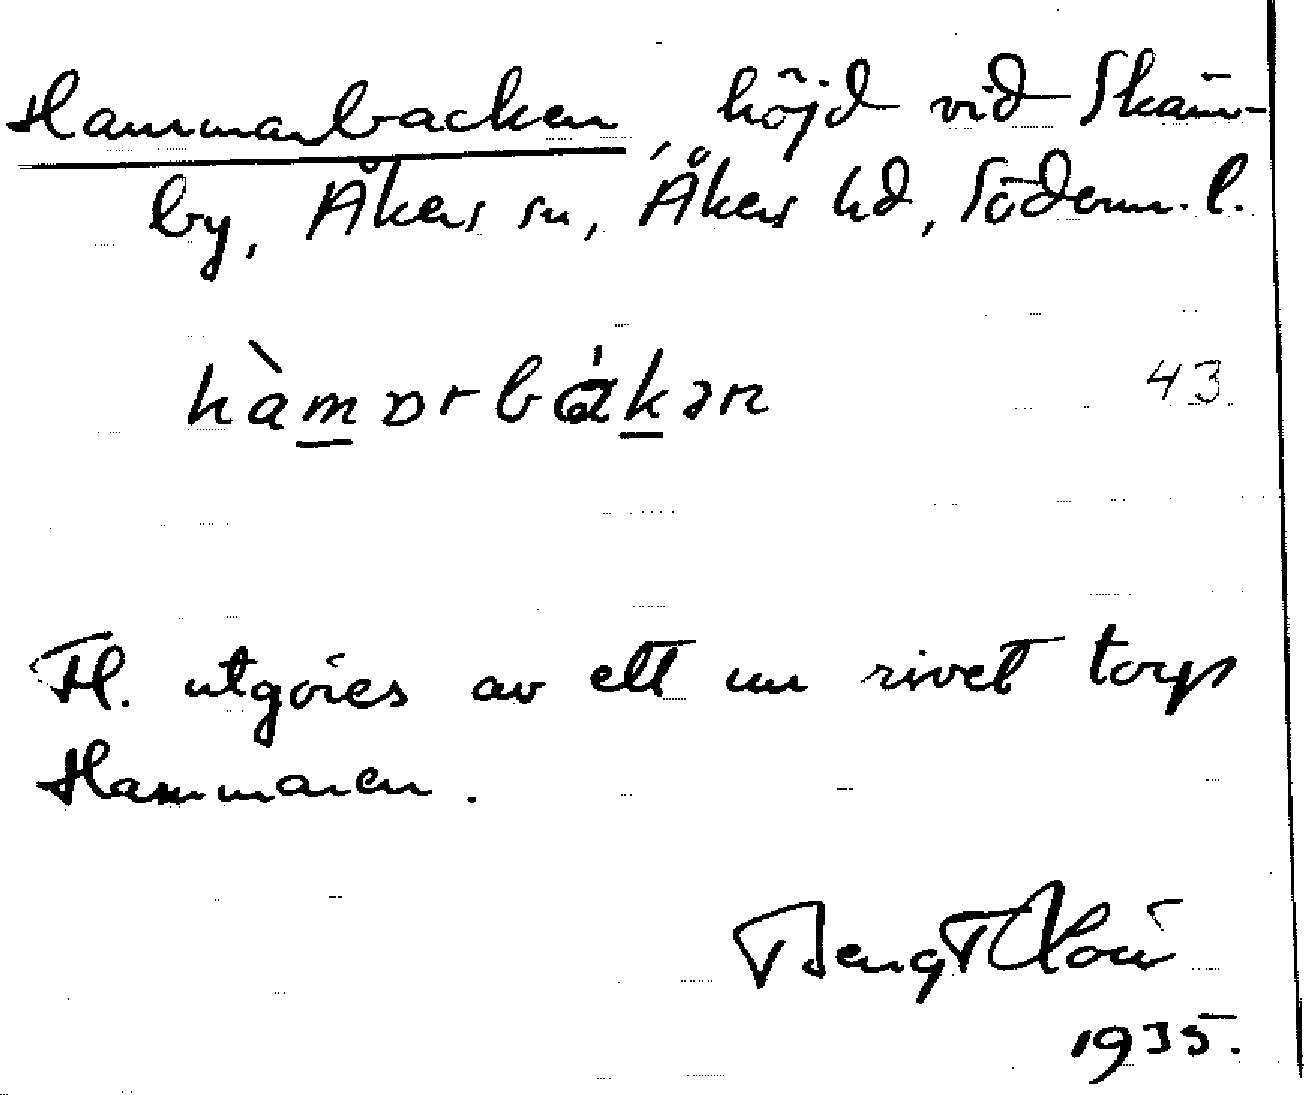 Hammarbacken, höjd vid Skäm-
by, Åkers sn, Åkers hd, Söderm. l.
hàmɒrbákən 43
H. utgöres av ett nu rivet torp
Hammaren.
Bengt
1935.